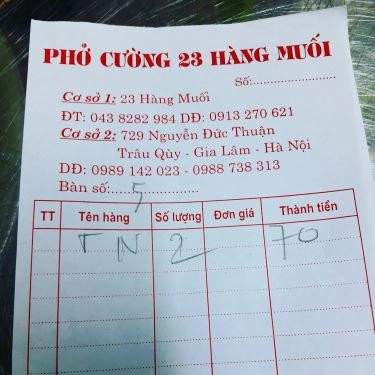 PHỞ CƯỜNG 23 HÀNG MUỐI
Số:........................
Cơ sở 1: 23 Hàng Muối
ĐT: 043 8282 984 DĐ: 0913 270 621
Cơ sở 2: 729 Nguyễn Đức Thuận
Trâu Qùy - Gia Lâm - Hà Nội
DĐ: 0989 142 023 - 0988 738 313
Bàn số:....5................
TT Tên hàng Số lượng Đơn giá Thành tiền
TN 2 70